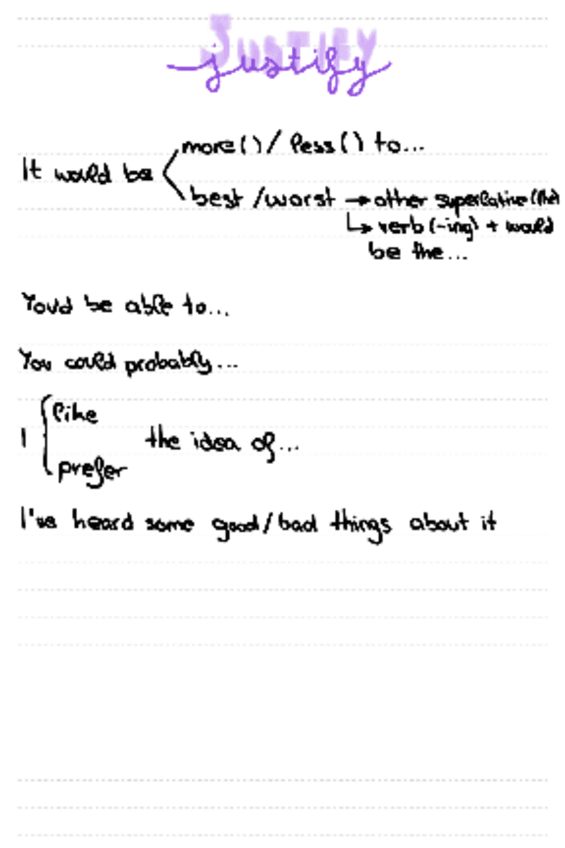 JUSTIFY
justify
It would be
more ( ) / less ( ) to...
best / worst → other superlative (the)
↳ verb (-ing) + would
be the...
You'd be able to...
You could probably...
I
like
prefer
the idea of...
I've heard some good/bad things about it